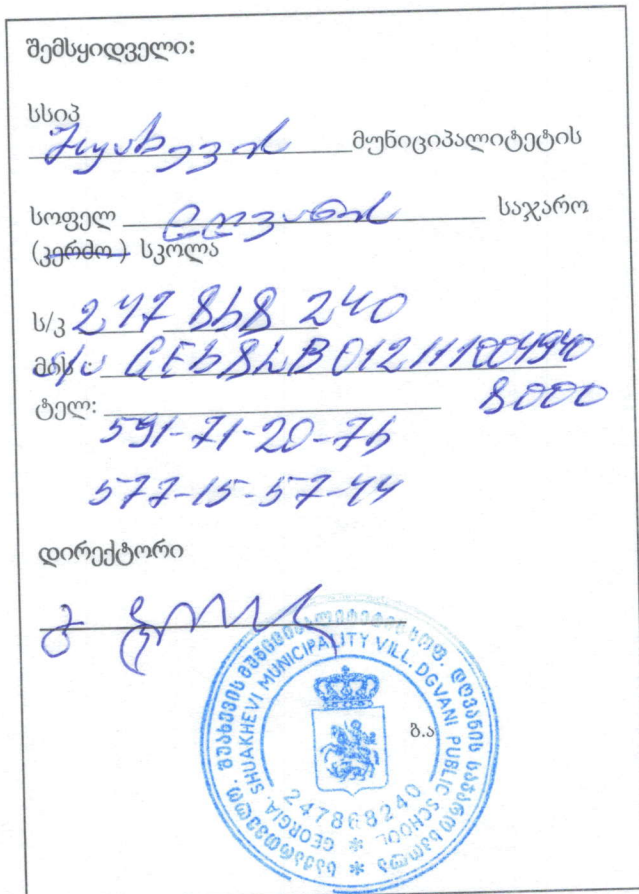 შემსყიდველი:
სსიპ
შუახევის მუნიციპალიტეტის
სოფელ დღვანის საჯარო
(კერძო) სკოლა
ს/კ 247 868 240
ტელ: 8000
591-71-20-76
577-15-57-44
დირექტორი
ბ.ა
საქართველო. შუახევის მუნიციპალიტეტის სოფ. დღვანის საჯარო სკოლა
GEORGIA, SHUAKHEVI MUNICIPALITY VILL. DGVANI PUBLIC SCHOOL
247868240